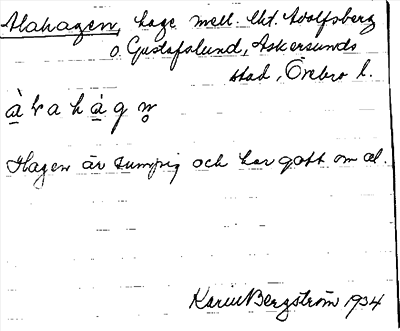 Alahagen, hage mell. lht. Adolfsberg
o. Gustafslund, Askersunds
stad, Örebro l.
Hagen är sumpig och har gott om al.
Karin Bergström 1934